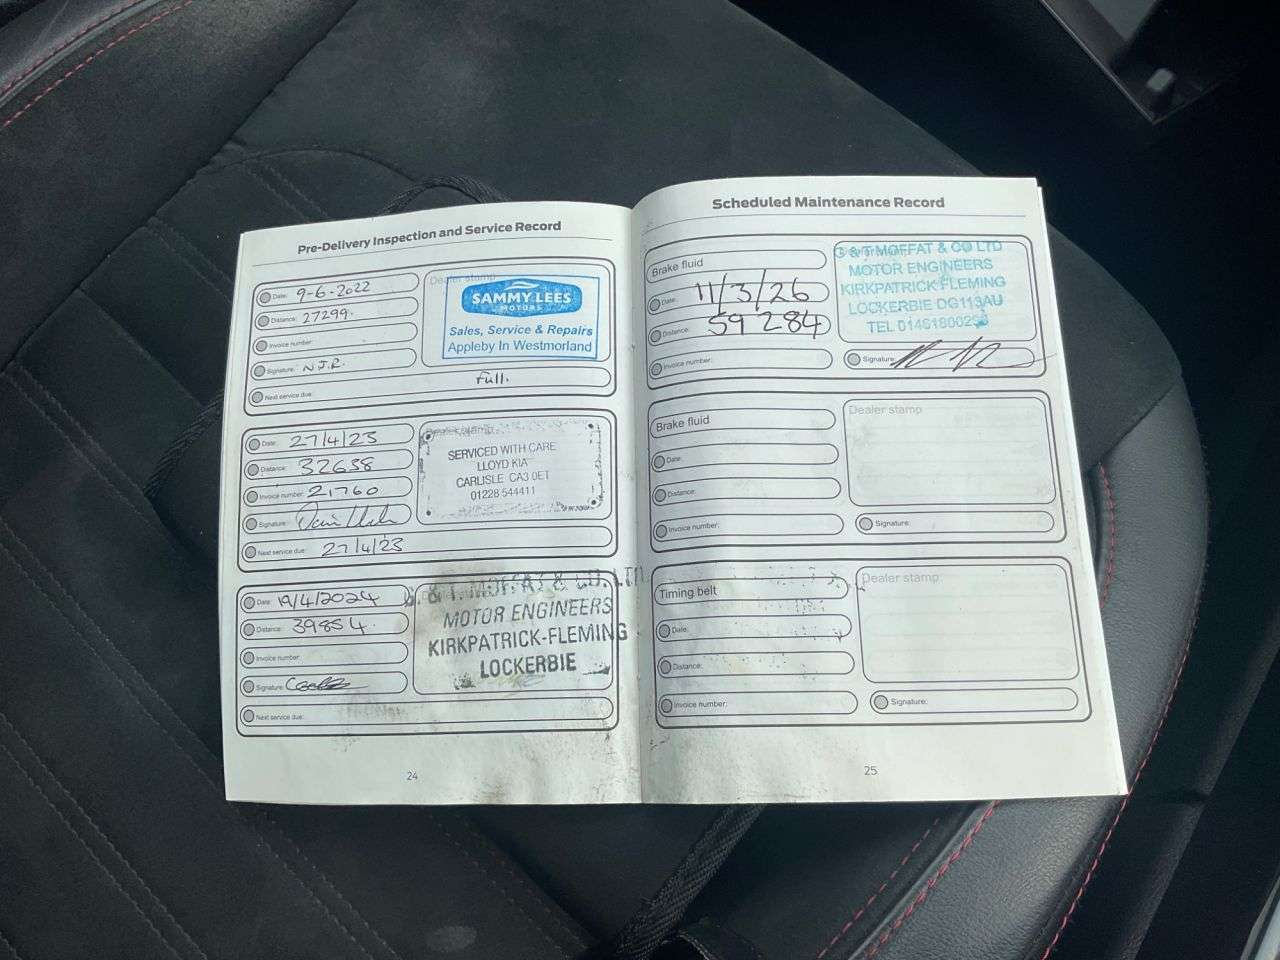 Pre-Delivery Inspection and Service Record
Date: 9-6-2022
Distance: 27299.
Invoice number:
Signature: N.J.R.
Next service due: Full.
Dealer stamp
SAMMY LEES
MOTORS
Sales, Service & Repairs
Appleby In Westmorland
Date: 27/4/23
Distance: 32638
Invoice number: 21760
Signature:
Next service due: 27/4/23
Dealer stamp
SERVICED WITH CARE
LLOYD KIA
CARLISLE CA3 0ET
01228 544411
Date: 19/4/2024
Distance: 39854.
Invoice number:
Signature:
Next service due:
G. & T. MOFFAT & CO. LTD.
MOTOR ENGINEERS
KIRKPATRICK-FLEMING
LOCKERBIE
24
Scheduled Maintenance Record
Brake fluid
Date: 11/3/26
Distance: 59284
Invoice number:
G & T MOFFAT & CO LTD
MOTOR ENGINEERS
KIRKPATRICK FLEMING
LOCKERBIE DG113AU
TEL
Signature:
Brake fluid
Date:
Distance:
Invoice number:
Dealer stamp
Signature:
Timing belt
Date:
Distance:
Invoice number:
Dealer stamp
Signature:
25